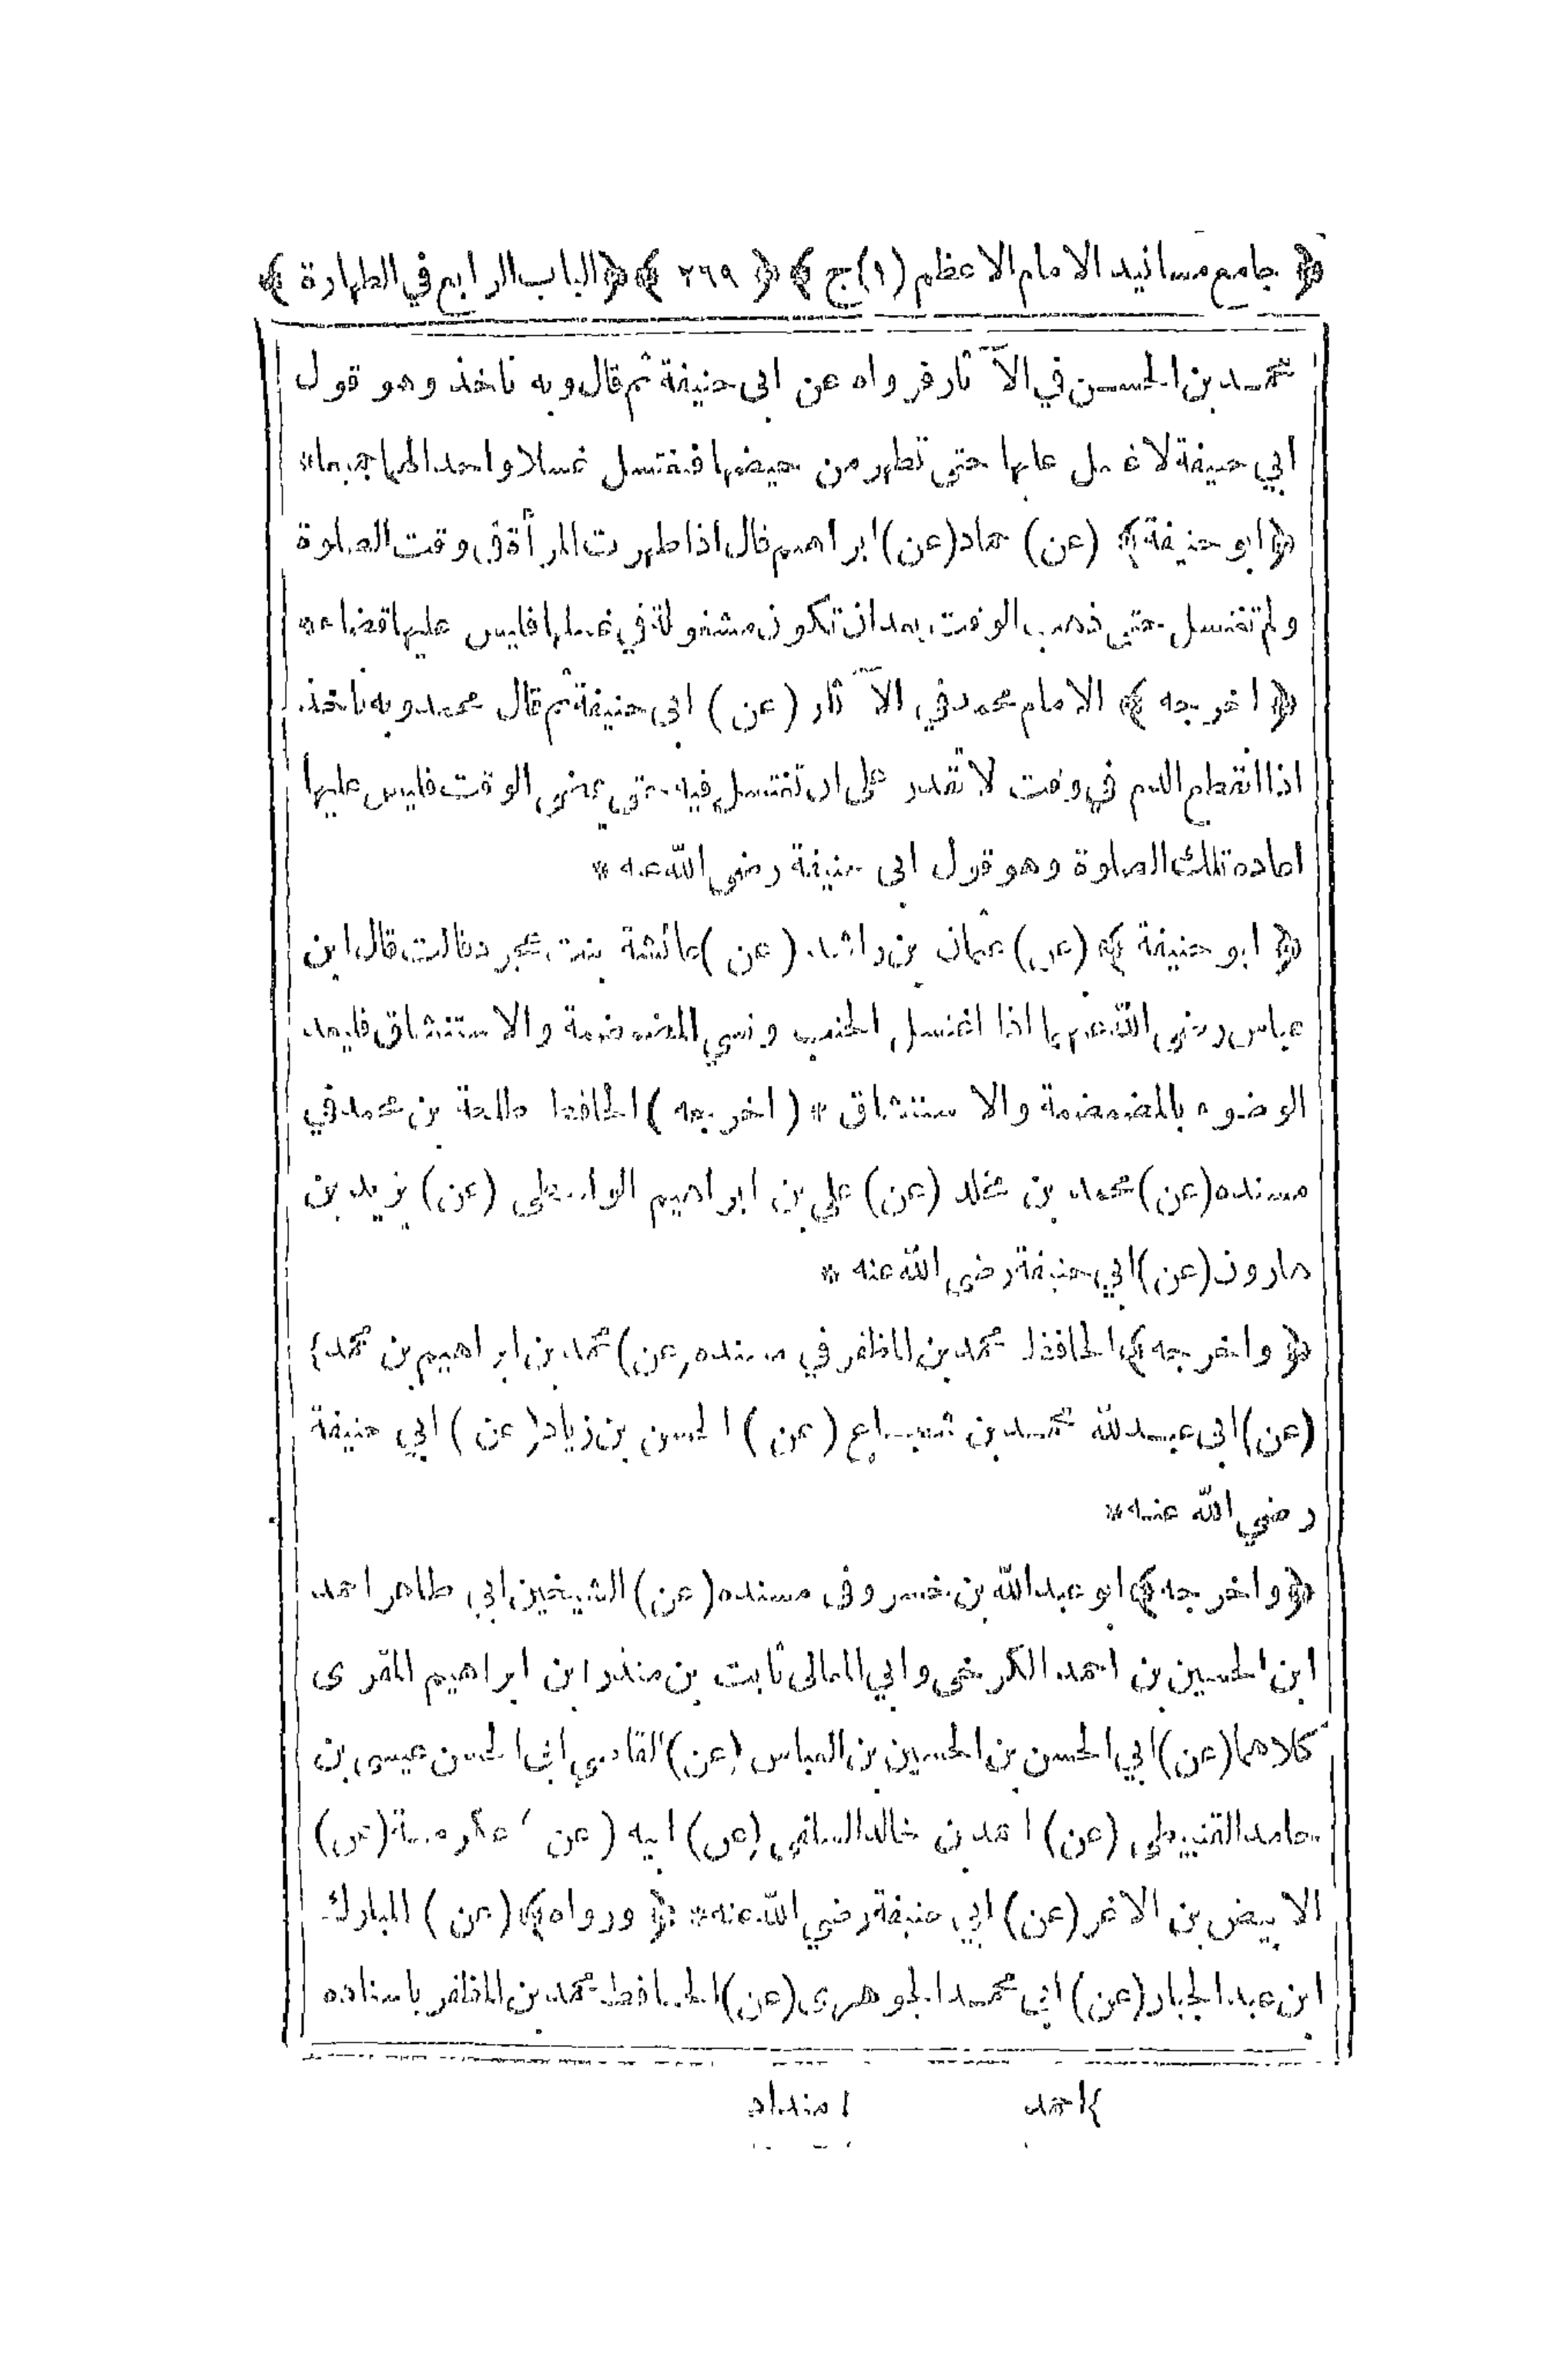 ﴿ جامع مسانيد الامام الاعظم (١) ج ﴾ ﴿ ٢٦٩ ﴾ ﴿ الباب الرابع في الطهارة ﴾
محمد بن الحسن في الآثار فرواه عن ابى حنيفة ثم قال وبه ناخذ وهو قول
ابي حنيفة لا غسل عليها حتى تطهر من حيضها فتغتسل غسلا واحدا لهما جميعا*
﴿ ابو حنيفة ﴾ (عن) حماد (عن) ابراهيم قال اذا طهرت المرأة فى وقت الصلوة
ولم تغتسل حتى ذهب الوقت بعد ان تكون مشغولة في غسلها فليس عليها قضاء*
﴿ اخرجه ﴾ الامام محمد في الآثار (عن) ابى حنيفة ثم قال محمد وبه ناخذ
اذا انقطع الدم في وقت لا تقدر على ان تغتسل فيه حتى يمضى الوقت فليس عليها
اعادة تلك الصلوة وهو قول ابى حنيفة رضى الله عنه *
﴿ ابو حنيفة ﴾ (عن) عثمان بن راشد (عن) عائشة بنت عجرد قالت قال ابن
عباس رضي الله عنهما اذا اغتسل الجنب ونسي المضمضة والاستنشاق فليعد
الوضوء بالمضمضة والاستنشاق * (اخرجه) الحافظ طلحة بن محمد في
مسنده (عن) محمد بن مخلد (عن) علي بن ابراهيم الواسطى (عن) يزيد بن
هارون (عن) ابي حنيفة رضى الله عنه *
﴿ واخرجه ﴾ الحافظ محمد بن المظفر في مسنده (عن) محمد بن ابراهيم بن محمد}
(عن) ابى عبد لله محمد بن شجاع (عن) الحسن بن زياد (عن) ابي حنيفة
رضي الله عنه*
﴿ واخرجه ﴾ ابو عبد الله بن خسرو فى مسنده (عن) الشيخين ابي طاهر احمد
ابن الحسين بن احمد الكرخى وابي المعالى ثابت بن منذر ابن ابراهيم المقرى
كلاهما (عن) ابي الحسن بن الحسين بن العباس (عن) القاضي ابى الحسن عيسى بن
حامد القنبيطى (عن) احمد بن خالد السلفى (عن) ابيه (عن) عكرمة (عن)
الابيض بن الاغر (عن) ابي حنيفة رضي الله عنه * ﴿ ورواه ﴾ (عن) المبارك
ابن عبد الجبار (عن) ابي محمد الجوهرى (عن) الحافظ محمد بن المظفر باسناده
}احمد